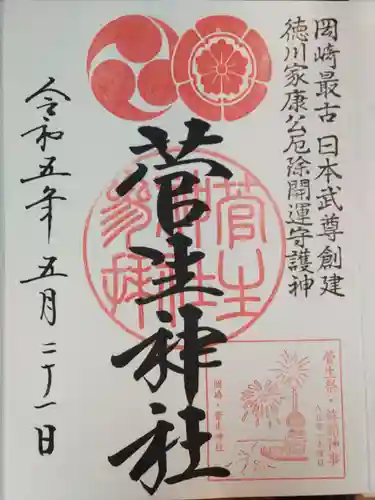 岡崎最古 日本武尊創建
徳川家康公厄除開運守護神
菅生神社
参拝
菅生神社
菅生祭・鉾船神事
岡崎・菅生神社
令和五年五月二十一日